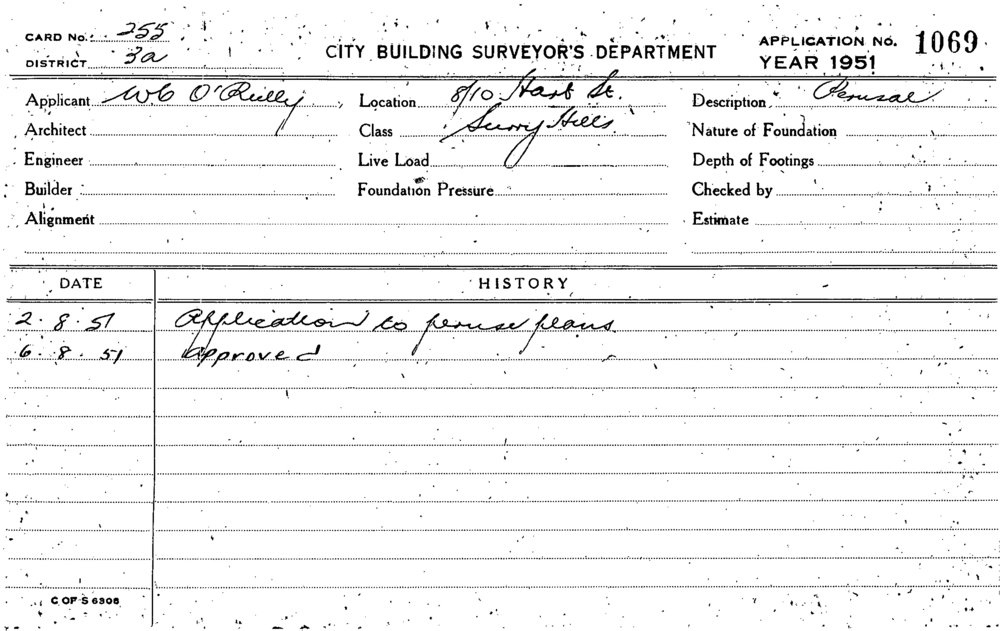 CARD No. 255
DISTRICT 3a
CITY BUILDING SURVEYOR'S DEPARTMENT
APPLICATION No. 1069
YEAR 1951
Applicant WC O'Reilly Location 8/10 Hart St. Description Perusal
Architect Class Surry Hills Nature of Foundation
Engineer Live Load Depth of Footings
Builder Foundation Pressure Checked by
Alignment Estimate
DATE HISTORY
2.8.51 Application to peruse plans
6.8.51 approved
C OF S 6306